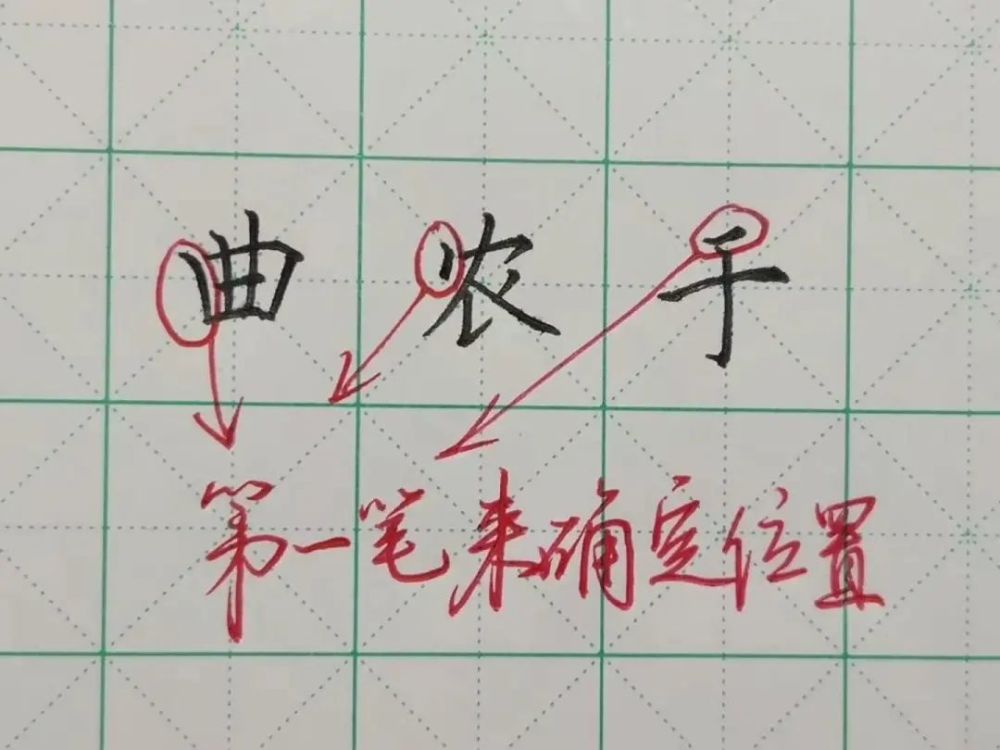 曲农干
第一笔来确定位置